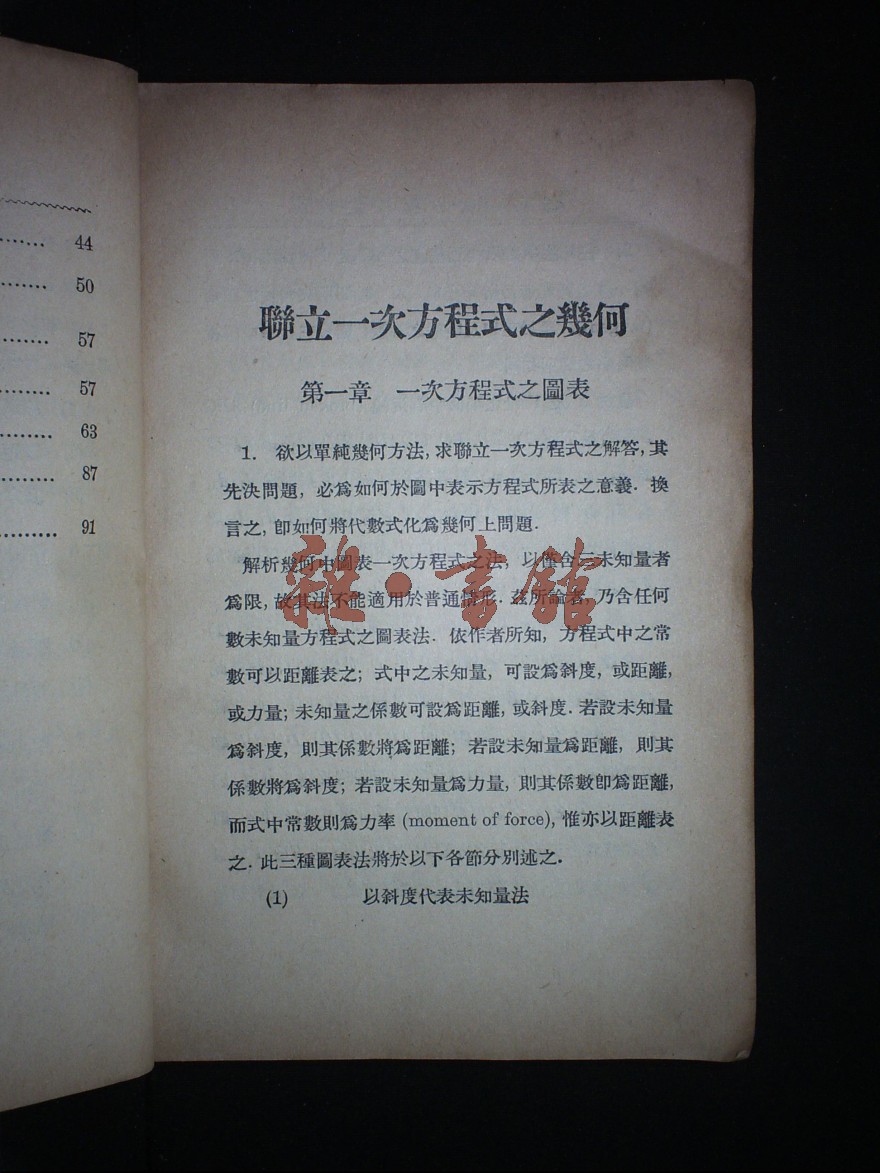 44
50
57
57
63
87
91
聯立一次方程式之幾何
第一章 一次方程式之圖表
1. 欲以單純幾何方法, 求聯立一次方程式之解答, 其
先決問題, 必爲如何於圖中表示方程式所表之意義. 換
言之, 卽如何將代數式化爲幾何上問題.
解析幾何中圖表一次方程式之法, 以僅含三未知量者
爲限, 故其法不能適用於普通情形. 茲所論者, 乃含任何
數未知量方程式之圖表法. 依作者所知, 方程式中之常
數可以距離表之; 式中之未知量, 可設爲斜度, 或距離,
或力量; 未知量之係數可設爲距離, 或斜度. 若設未知量
爲斜度, 則其係數將爲距離; 若設未知量爲距離, 則其
係數將爲斜度; 若設未知量爲力量, 則其係數卽爲距離,
而式中常數則爲力率 (moment of force), 惟亦以距離表
之. 此三種圖表法將於以下各節分別述之.
(1) 以斜度代表未知量法
雜·書館